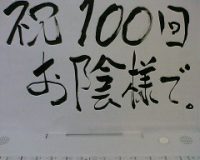 祝100回
お陰様で。